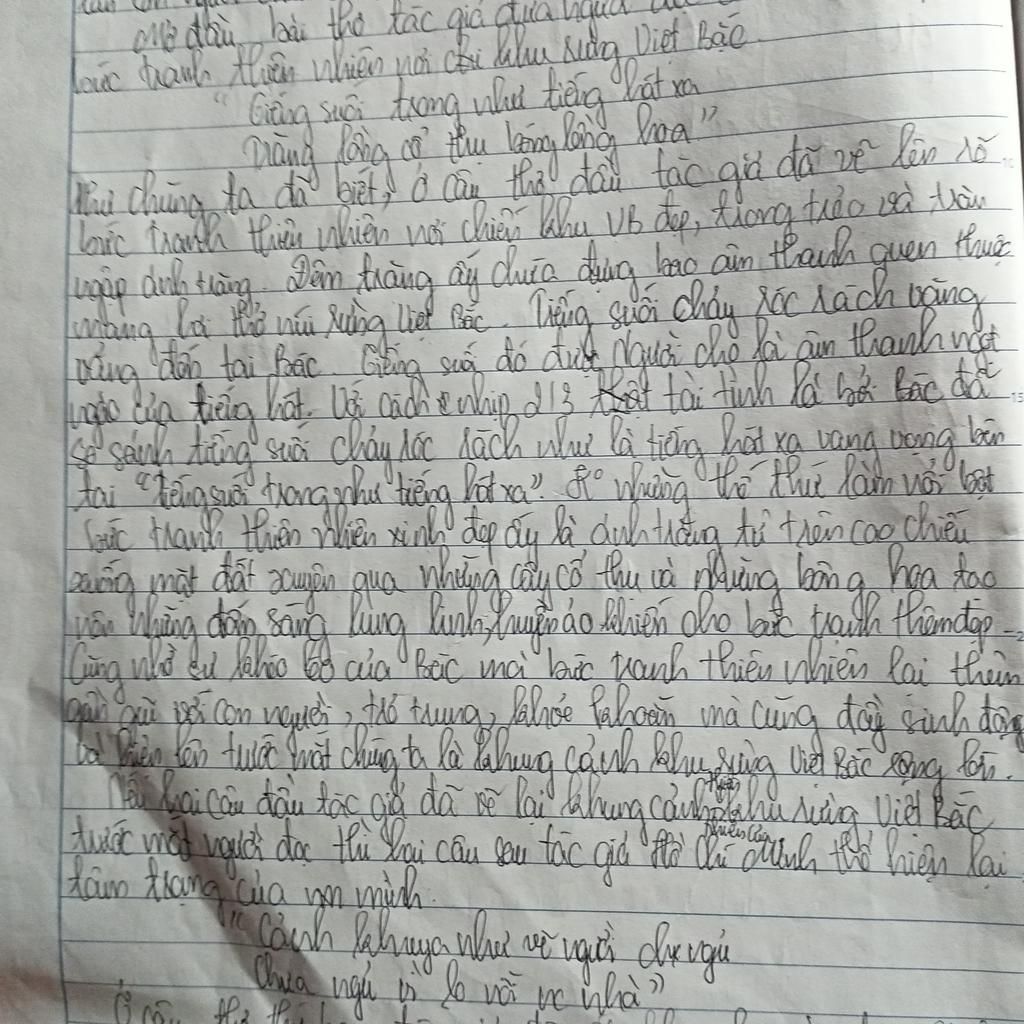 Mở đầu bài thơ tác giả đưa người
bức tranh thiên nhiên nơi khu rừng Việt Bắc
"Tiếng suối trong như tiếng hát xa
Trăng lồng cổ thụ bóng lồng hoa"
Như chúng ta đã biết, ở câu thơ đầu tác giả đã vẽ lên rõ
bức tranh thiên nhiên nơi chiến khu VB đẹp, trong trẻo và tràn
ngập ánh trăng. Đêm trăng ấy chứa đựng bao âm thanh quen thuộc
mang hơi thở núi rừng Việt Bắc. Tiếng suối chảy róc rách văng
vẳng đến tai Bác. Tiếng suối đó được Người cho là âm thanh ngọt
ngào của tiếng hát. Với cách nhịp 2/3 thật tài tình là bởi Bác đã
so sánh tiếng suối chảy róc rách như là tiếng hát xa vang vọng bên
tai "tiếng suối trong như tiếng hát xa". những thứ làm nổi bật
bức tranh thiên nhiên xinh đẹp ấy là ánh trăng từ trên cao chiếu
xuống mặt đất xuyên qua những cây cổ thụ và những bông hoa tạo
nên những đốm sáng lung linh, huyền ảo khiến cho bức tranh thêm đẹp
Cũng nhờ sự khéo léo của Bác mà bức tranh thiên nhiên lại thêm
gần gũi với con người, trẻ trung, khỏe khoắn mà cũng đầy sinh động
và hiện lên trước mắt chúng ta là khung cảnh khu rừng Việt Bắc rộng lớn.
Nếu hai câu đầu tác giả đã vẽ lại khung cảnh khu rừng Việt Bắc
trước mắt người đọc thì hai câu sau tác giả Hồ Chí Minh thể hiện lại
tâm trạng của mình.
"Cảnh khuya như vẽ người chưa ngủ
Chưa ngủ vì lo nỗi nc nhà"
Ở câu thơ